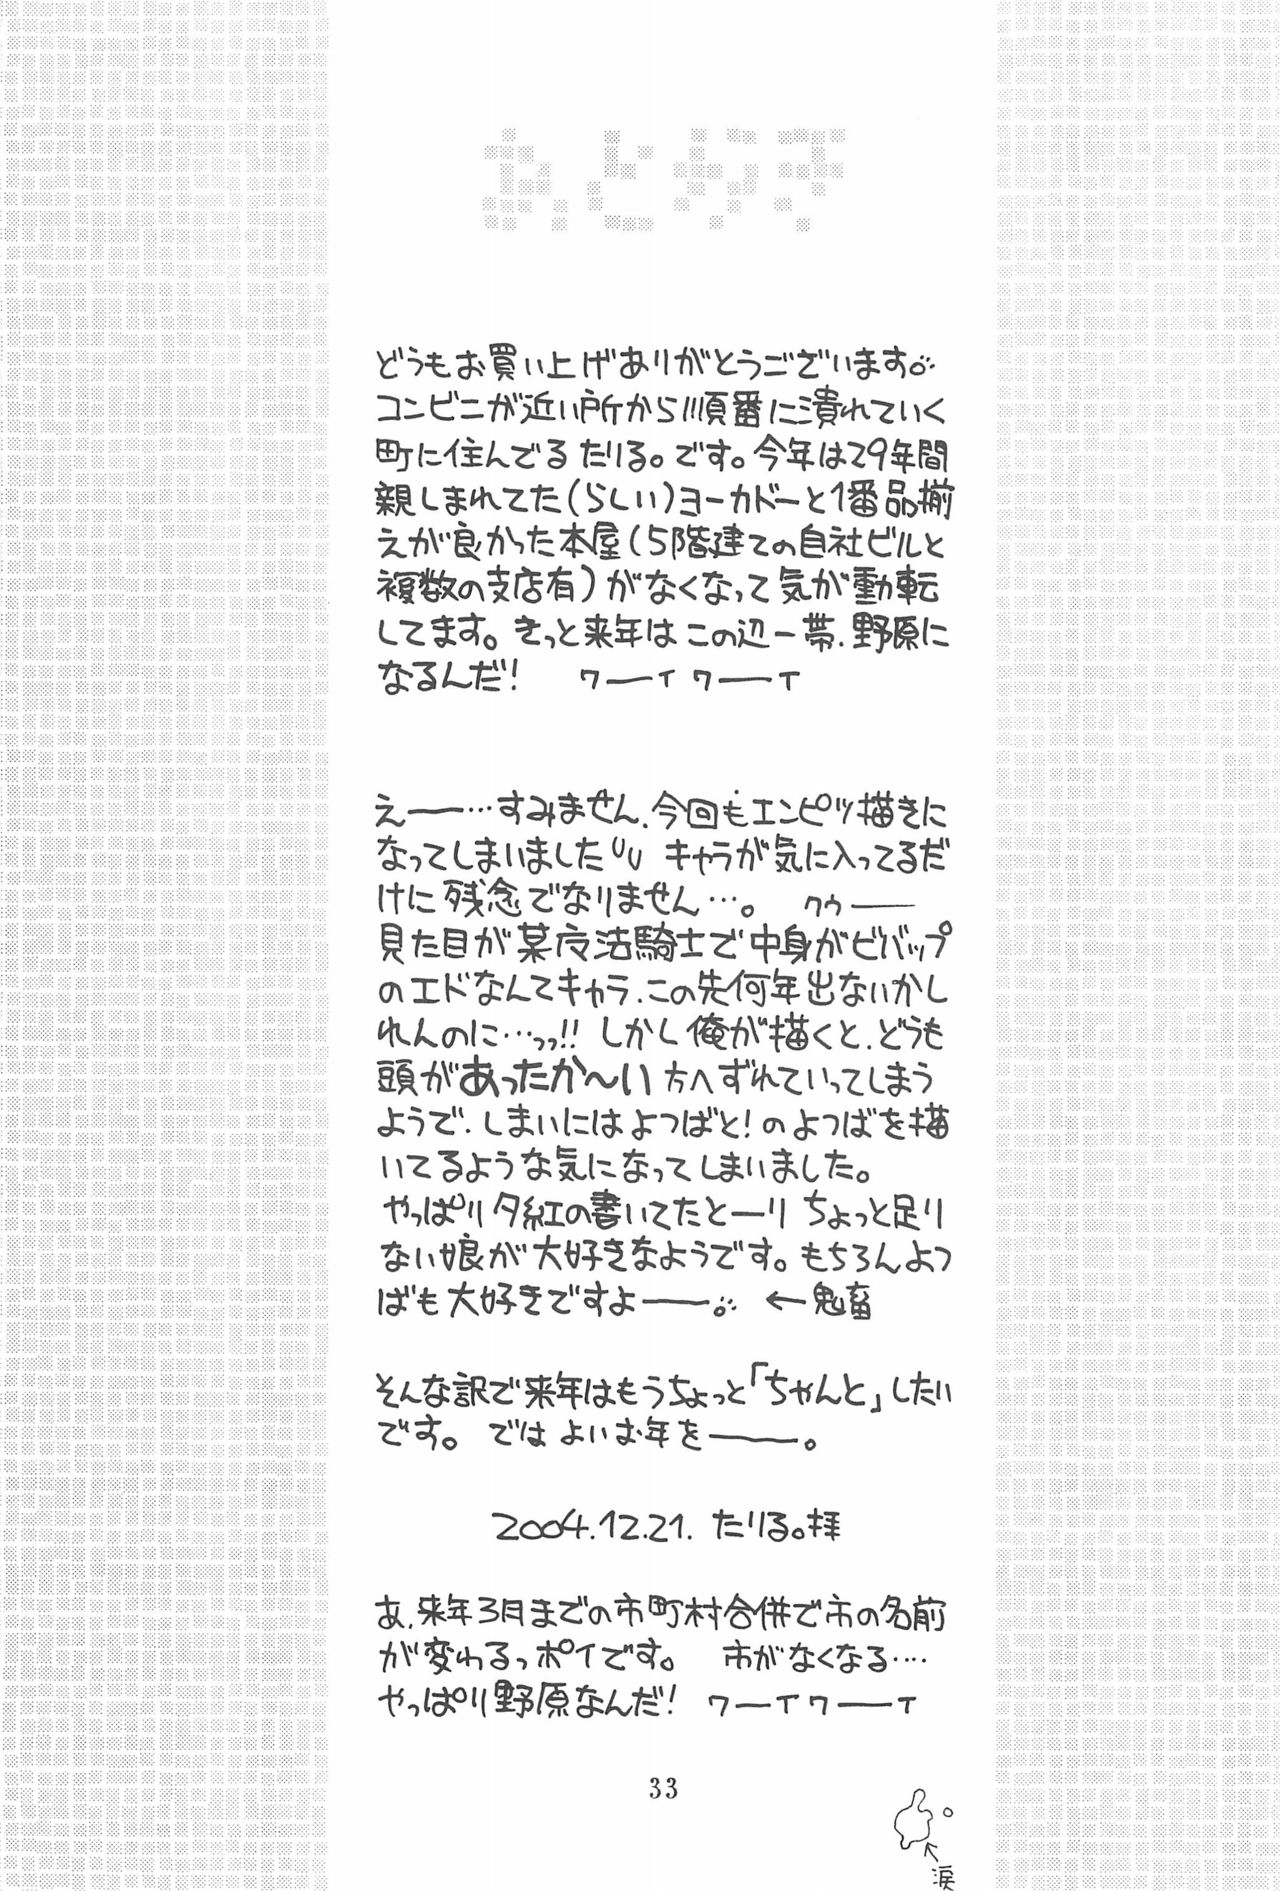 あとがき
どうもお買い上げありがとうございます。
コンビニが近い所から順番に潰れていく
町に住んでる たりる。です。今年は29年間
親しまれてた(らしい)ヨーカドーと1番品揃
えが良かった本屋(5階建ての自社ビルと
複数の支店有)がなくなって気が動転
してます。きっと来年はこの辺一帯、野原に
なるんだ! ワーイワーイ
えー…すみません、今回もエンピツ描きに
なってしまいました キャラが気に入ってるだ
けに残念でなりません…。 クゥー
見た目が某魔法騎士で中身がビバップ
のエドなんてキャラ、この先何年出ないかし
れんのに…っっ!! しかし俺が描くと、どうも
頭があったか〜い方へずれていってしまう
ようで、しまいにはよつばと!のよつばを描
いてるような気になってしまいました。
やっぱり夕紅の書いてたとーり ちょっと足り
ない娘が大好きなようです。もちろんよつ
ばも大好きですよー。 ←鬼畜
そんな訳で来年はもうちょっと「ちゃんと」したい
です。 では よいお年をー。
2004.12.21. たりる。拝
あ、来年3月までの市町村合併で市の名前
が変わるっポイです。 市がなくなる‥‥
やっぱり野原なんだ! ワーイワーイ
33
涙